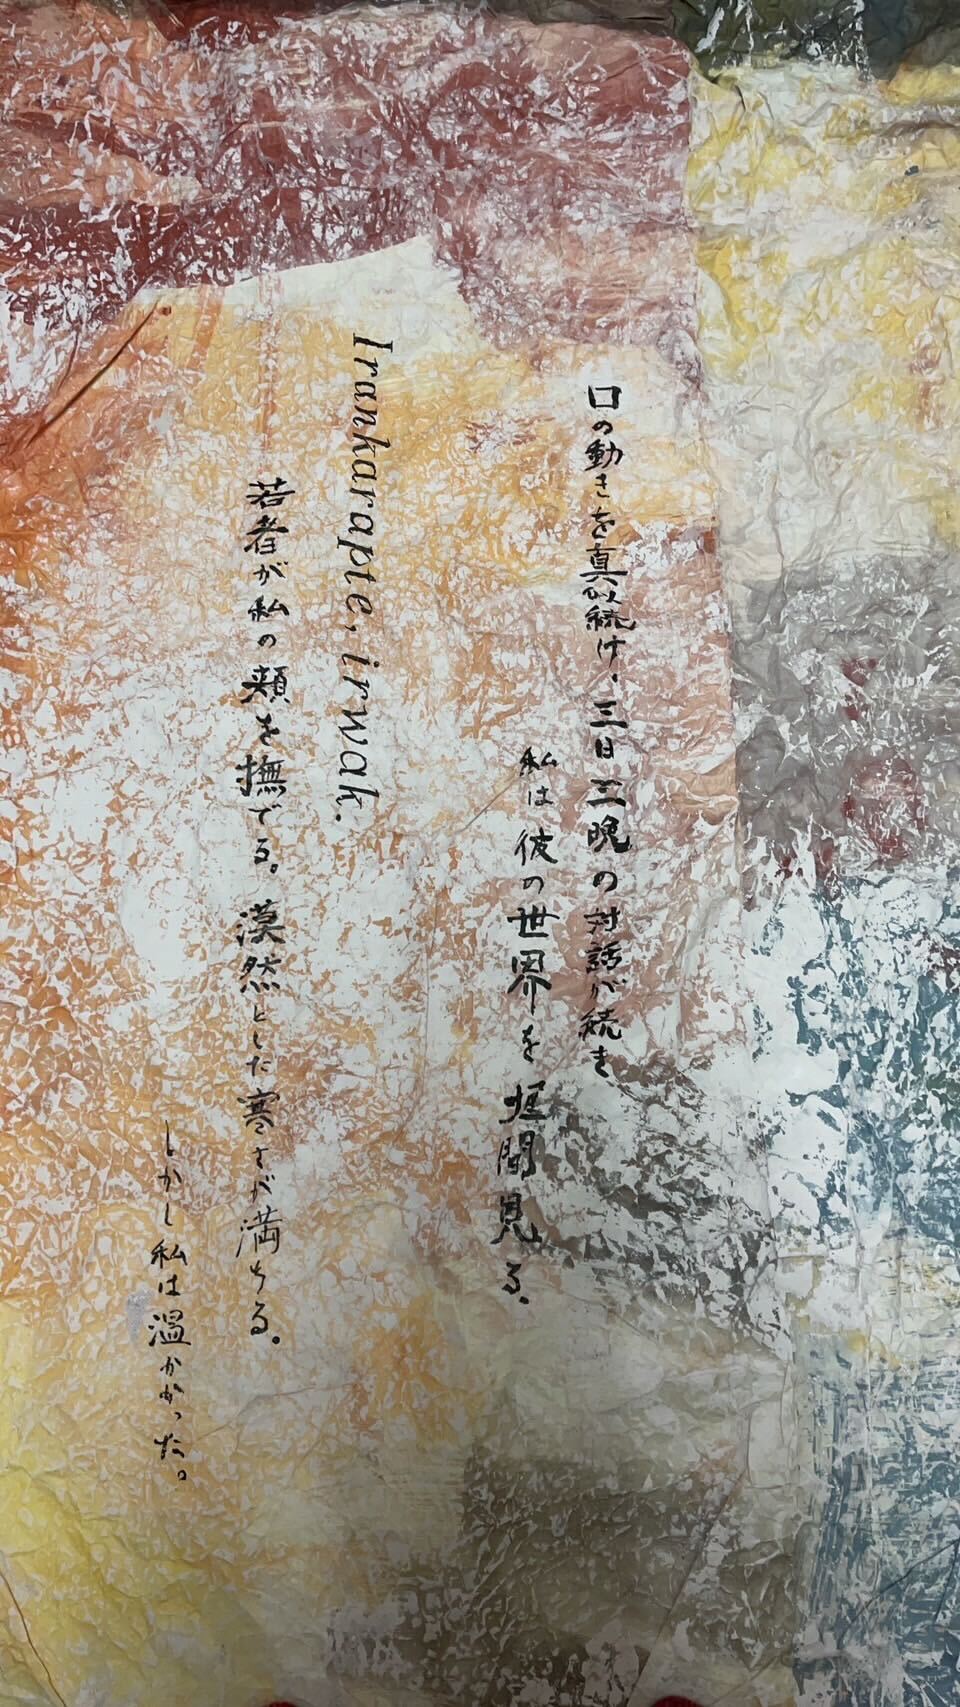 口の動きを真似続け、三日三晩の対話が続き、
私は彼の世界を垣間見る、
Irankarapte, irwak.
若者が私の頬を撫でる。漠然とした寒さが満ちる。
しかし私は温かかった。